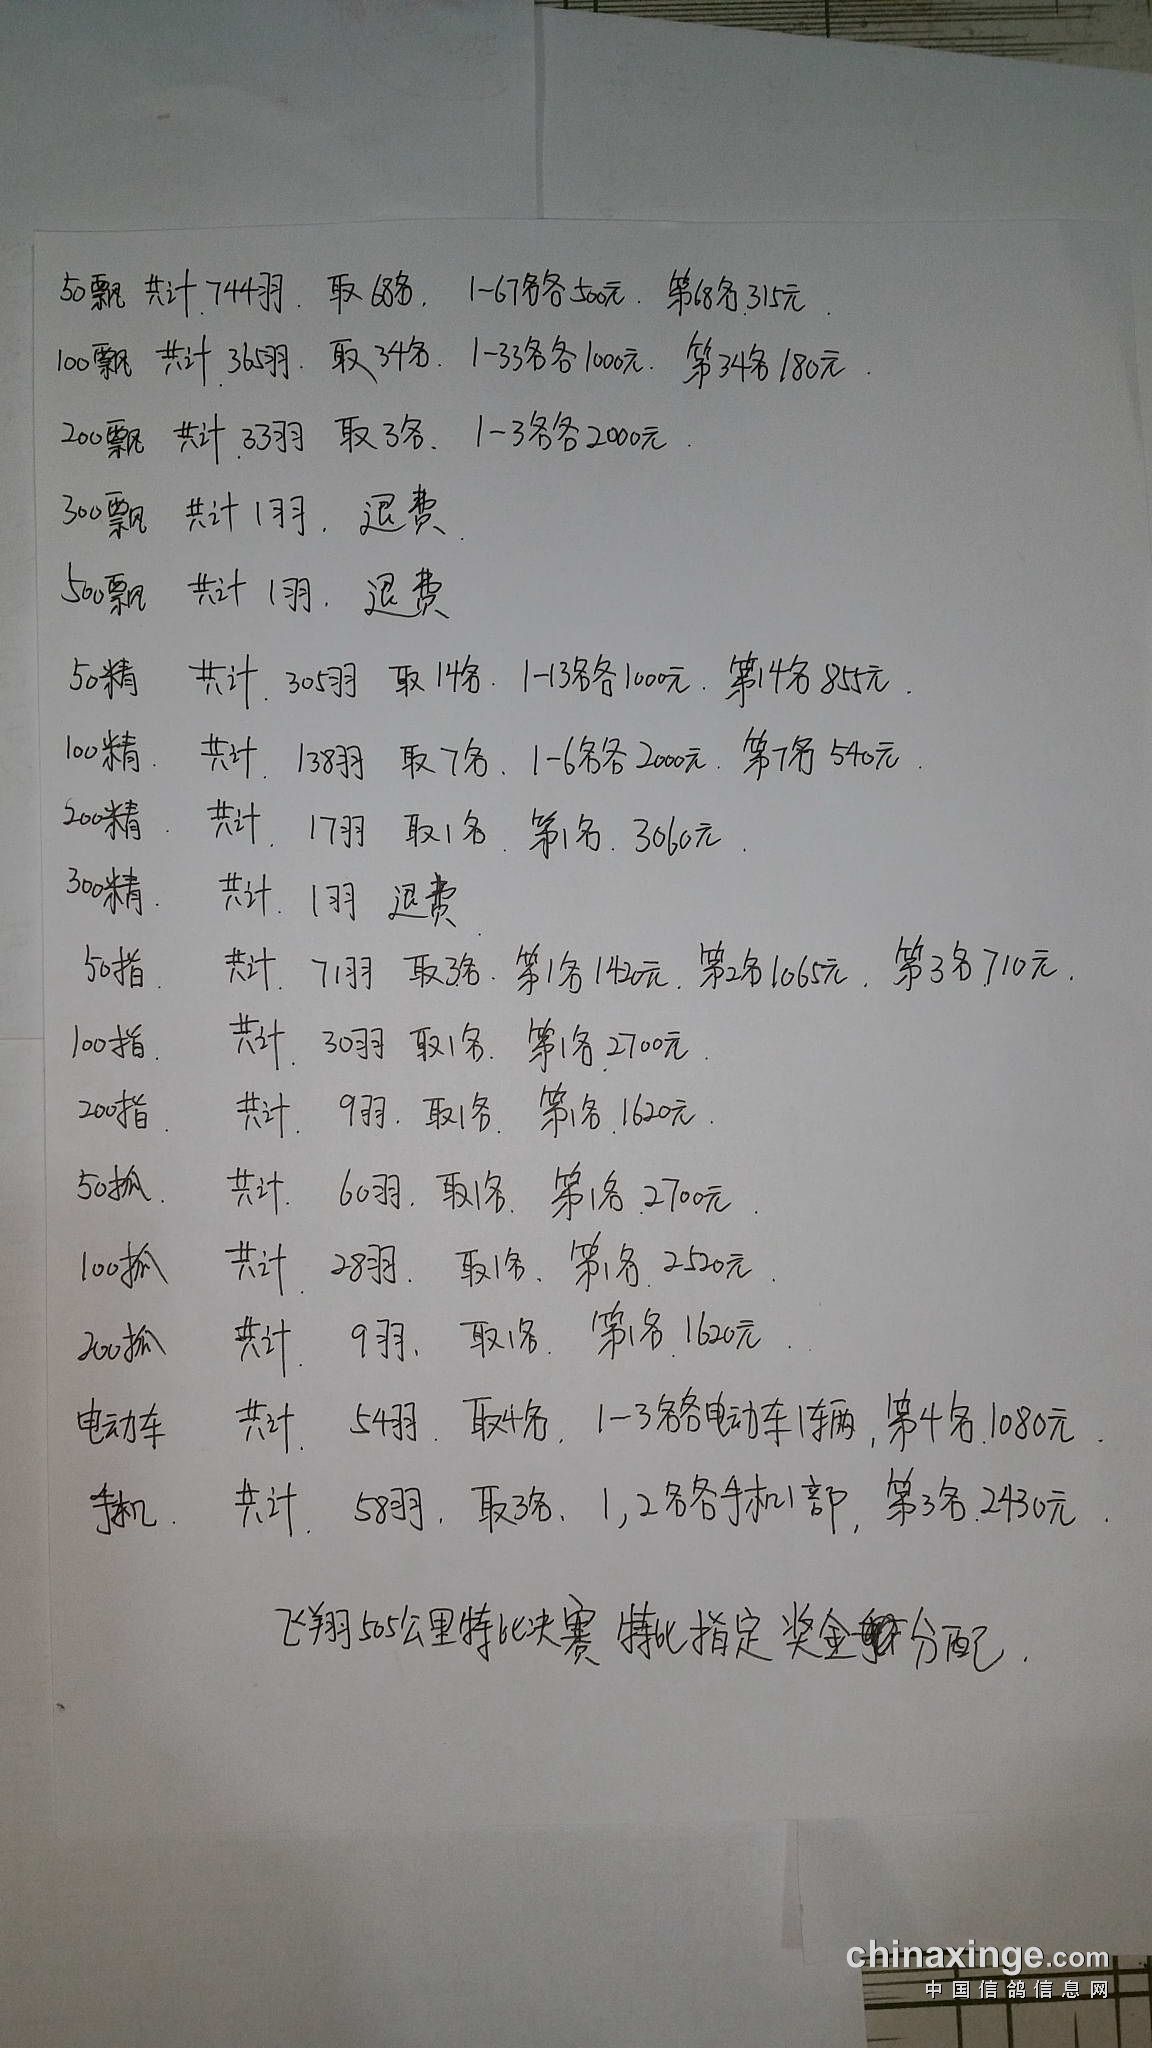 50飘 共计.744羽. 取68名. 1-67名各500元. 第68名.315元.
100飘 共计.365羽. 取34名. 1-33名各1000元. 第34名180元.
200飘 共计.33羽 取3名. 1-3名各2000元.
300飘 共计1羽. 退费.
500飘 共计1羽. 退费
50精 共计.305羽 取14名. 1-13名各1000元. 第14名855元.
100精. 共计. 138羽 取7名. 1-6名各2000元. 第7名540元.
200精. 共计. 17羽 取1名 第1名. 3060元.
300精. 共计. 1羽 退费.
50指. 共计. 71羽 取3名. 第1名1420元. 第2名1065元. 第3名.710元.
100指. 共计. 30羽 取1名. 第1名.2700元.
200指. 共计. 9羽. 取1名. 第1名.1620元.
50抓. 共计. 60羽. 取1名. 第1名.2700元.
100抓 共计. 28羽. 取1名. 第1名.2520元.
200抓 共计. 9羽. 取1名. 第1名.1620元.
电动车 共计. 54羽. 取4名. 1-3名各电动车1车辆,第4名.1080元.
手机. 共计. 58羽. 取3名. 1,2名各手机1部,第3名.2430元.
飞翔505公里特比决赛 特比指定 奖金分配.
chinaxinge.com
中国信鸽信息网